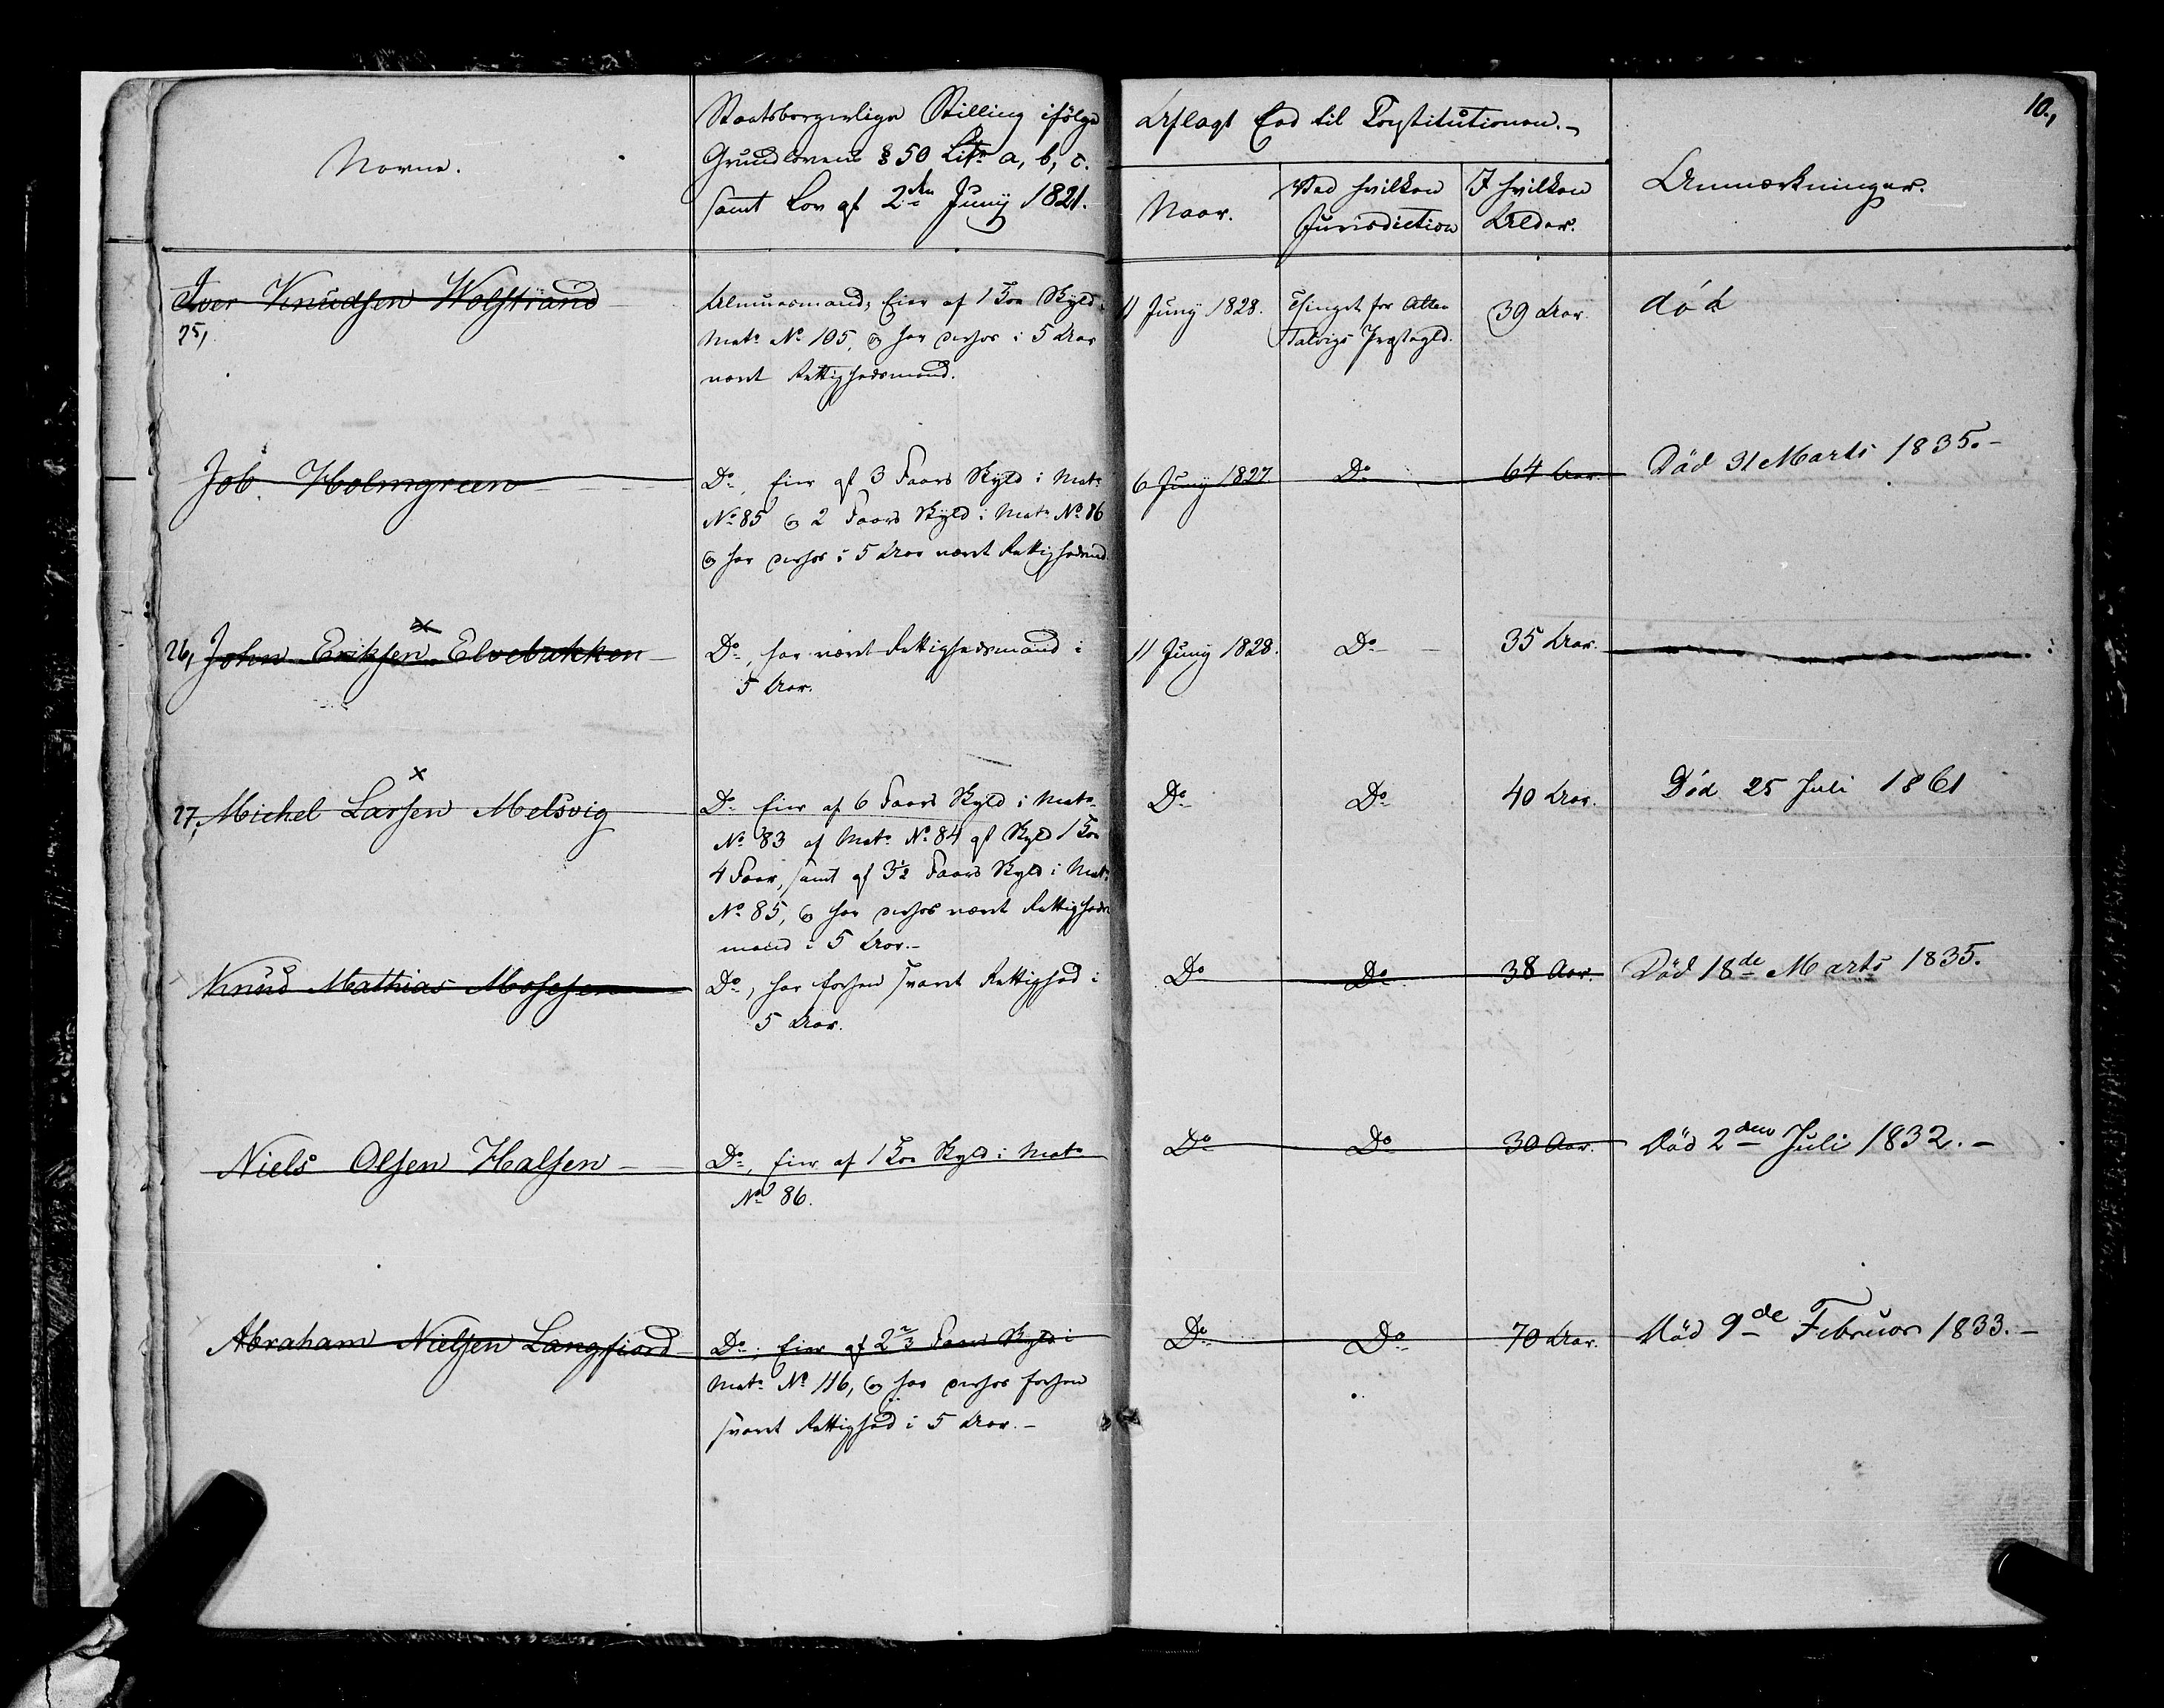 10.,
Navne.
Statsborgerlige Stilling ifölge
Grundlovens § 50 Litr a, b, c.
samt Lov af 2den Juny 1821.
Aflagt Eed til Constitutionen.-
Naar.
Ved hvilken
Jurisdiction
I hvilken
Alder.
Anmærkninger.
Iver Knudsen Wolstrand
25,
Almuesmand, Eier af 1 Koe Skyld i
Mats No 105, og har derfor i 5 Aar
været Rettighedsmand.
11 Juny 1828.
Thinget for Alten
Talvigs Præstegld.
39 Aar.
död
Job Holmgreen
Do, Eier af 3 Faars Skyld i Mats
No 85 og 2 Faars Skyld i Mats No 86
og har derfor i 5 Aar været Rettighedsmd
6 Juny 1827
Do
64 Aar.
Död 31 Marts 1835.-
x
26, John Eriksen Elvebakken
Do, har været Rettighedsmand i
5 Aar.
11 Juny 1828.
Do
35 Aar.
x
27, Michel Larsen Melsvig
Do Eier af 6 Faars Skyld i Mats
No 83 af Mats No 84 af Skyld 1 Koe
4 Faar, samt af 3½ Faars Skyld i Mats
No 85, og har derfor været Rettigheds
mand i 5 Aar.-
Do
Do
40 Aar.
Död 25 Juli 1861
Knud Mathias Mosesen
Do, har forhen svaret Rettighed i
5 Aar.
Do
Do
38 Aar.
Död 18de Marts 1835.
Niels Olsen Halsen
Do, Eier af 1 Koe Skyld i Mats
No 86.
Do
Do
30 Aar.
Död 2den Juli 1832.-
Abraham Nielsen Langfiord
Do, Eier af 2⅔ Faars Skyld i
Mats No 116, og har derfor forhen
svaret Rettighed i 5 Aar.-
Do
Do
70 Aar.
Död 9de Februar 1833.-